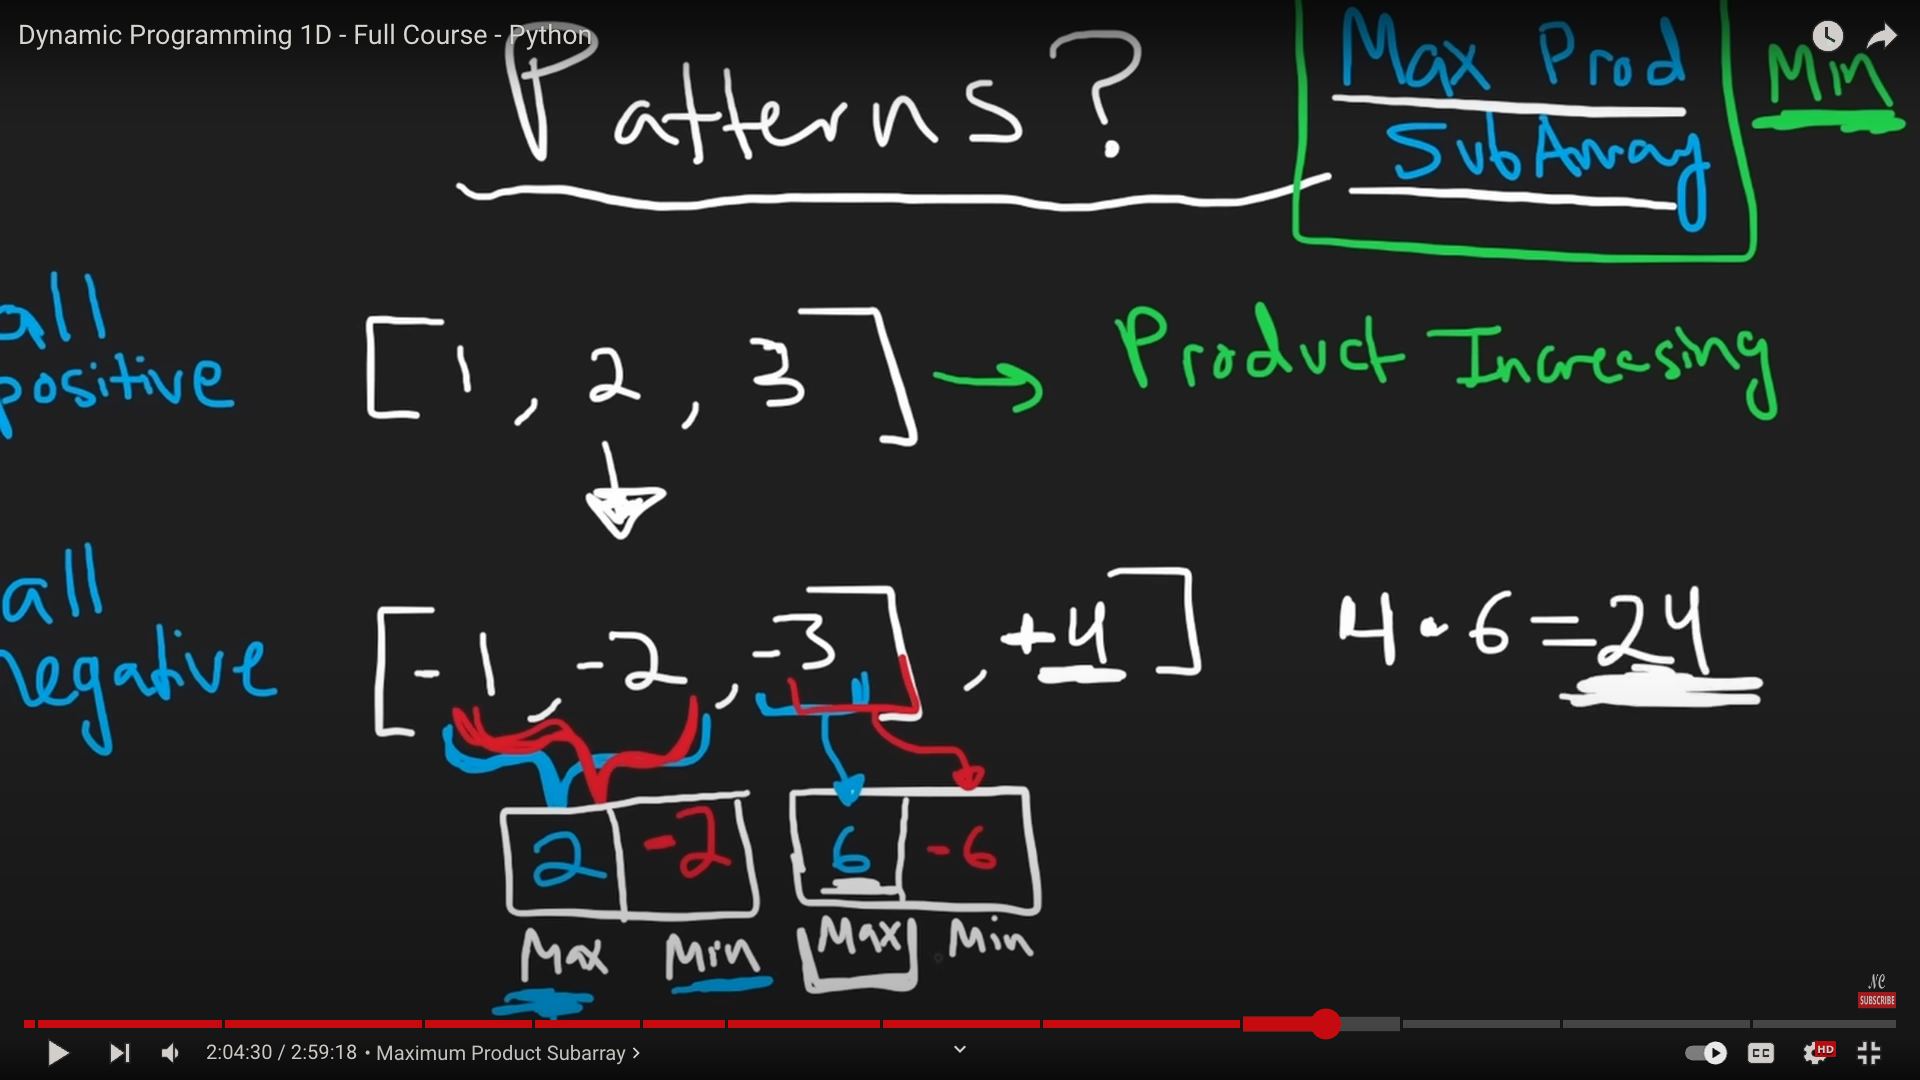 Dynamic Programming 1D - Full Course - Python
Patterns?
Max Prod
SubArray
Min
all
positive
[1, 2, 3] → Product Increasing
all
negative
[-1, -2, -3], +4] 4 • 6 = 24
2 -2 6 -6
Max Min Max Min
NC
SUBSCRIBE
2:04:30 / 2:59:18 • Maximum Product Subarray >
CC
HD